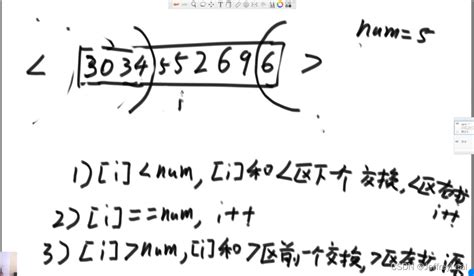 num=5
< [3034)552696( >
i
1) [i]<num, [i]和<区下一个交换,<区右扩
i++
2) [i]==num, i++
3) [i]>num,[i]和>区前一个交换,>区左扩